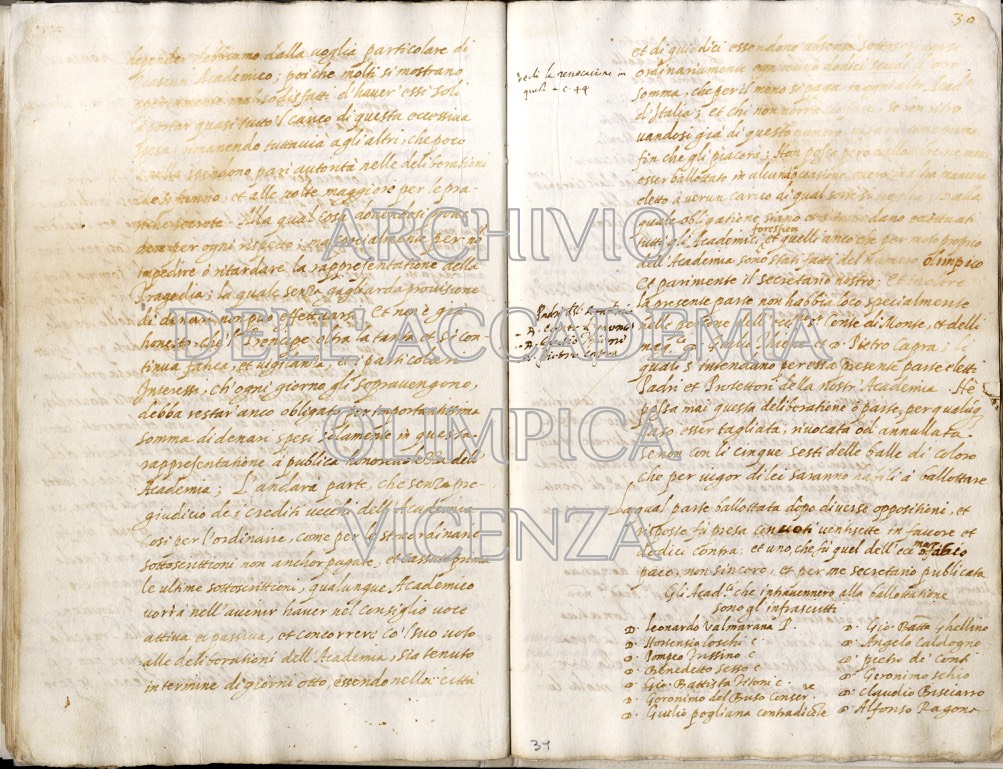 depender debbiamo dalla voglia particolare di
ciascun Academico; poi che molti si mostrano
mal sodisfatti d'haver essi soli
à portar quasi tutto 'l carico di questa eccessiva
spesa, rimanendo tuttavia à gli altri, che poco
ò nulla spendono pari autorità nelle deliberationi
et alle volte maggiore per le pra-
secrete. Alla qual cosa dovendosi provi-
dere per ogni rispetto; ma specialmente per nõ
impedire ò ritardare la rappresentatione della
Tragedia; la quale senza gagliarda provisione
di denari non può effettuarsi. Et non è già
honesto, che 'l Prencipe oltra la tanta et si con-
tinua fatica, et vigilanza, et i particolari
Interessi, ch'ogni giorno gli sopravengono,
debba restar anco obligato per importantissima
somma di denari spesi solamente in questa
rappresentatione à publica honorevolezza dell'
Academia; L'andarà parte, che senza pre-
giudicio de i crediti vecchi dell'Academia
così per l'ordinarie, come per le straordinarie
sottoscrittioni non anchor pagate, et cassata prima
le ultime sottoscrittioni, qualunque Academico
vorrà nell'avenir haver nel Consiglio voce
attiva et passiva, et concorrere co'l suo voto
alle deliberationi dell'Academia, sia tenuto
in termine di giorni otto, essendo nella città
30
et di quindici essendone absente sottoscriversi
ordinariamente ogni anno dodici scudi
somma, che per il meno si paga in ogni altra Acad.
d'Italia; et chi non vorrà
vandosi già di questo numero
fin che gli piacerà; Non possa però
esser ballottato in alcuna occasione,
eletto à verun carico di qual sorte si
quale obligatione siano et s'intendano eccettuati
tutti gli Academici forestieri et quelli anco che per moto proprio
dell'Academia sono stati fatti del numero olimpico
et parimente il secretario nostro; et inoltre
la presente parte non habbia loco specialmente
nelle persone dell' Conte di Monte, et delli
D. Pietro Capra;
quali s'intendano per essa presente parte eletti
Padri et Protettori della nostra Academia. Nè
possa mai questa deliberatione ò parte, per qualũq
caso esser tagliata, rivocata od annullata
se non con li cinque sesti delle balle di coloro
che per vigor di lei saranno habili à ballottare
La qual parte ballottata dopò diverse oppositioni, et
risposte fù presa con voti ventisette in favore et
dodici contra; et uno, che fù quel dell'ecc
pace, non sincero, et per me secretario publicata
Gli Acad.ci che intravennero alla ballottatione
sono gli infrascritti
D. Leonardo Valmarana P.
D. Hortensio Loschi C.
D. Pompeo Trissino C.
D. Benedetto Sesso C.
D. Gio. Battista Titoni C.
D. Geronimo del Buso Conser.re
D. Giulio pogliana contradicẽte
D. Gio. Batta Ghellino
D. Angelo Caldogno
D. pietro de' Conti
D. Geronimo schio
D. Claudio Bisciarro
D. Alfonso Ragona
Vedi la revocatione in
questo a c. 44
Padri
D. Pietro Capra
31
ARCHIVIO
DELL'ACCADEMIA
OLIMPICA
VICENZA